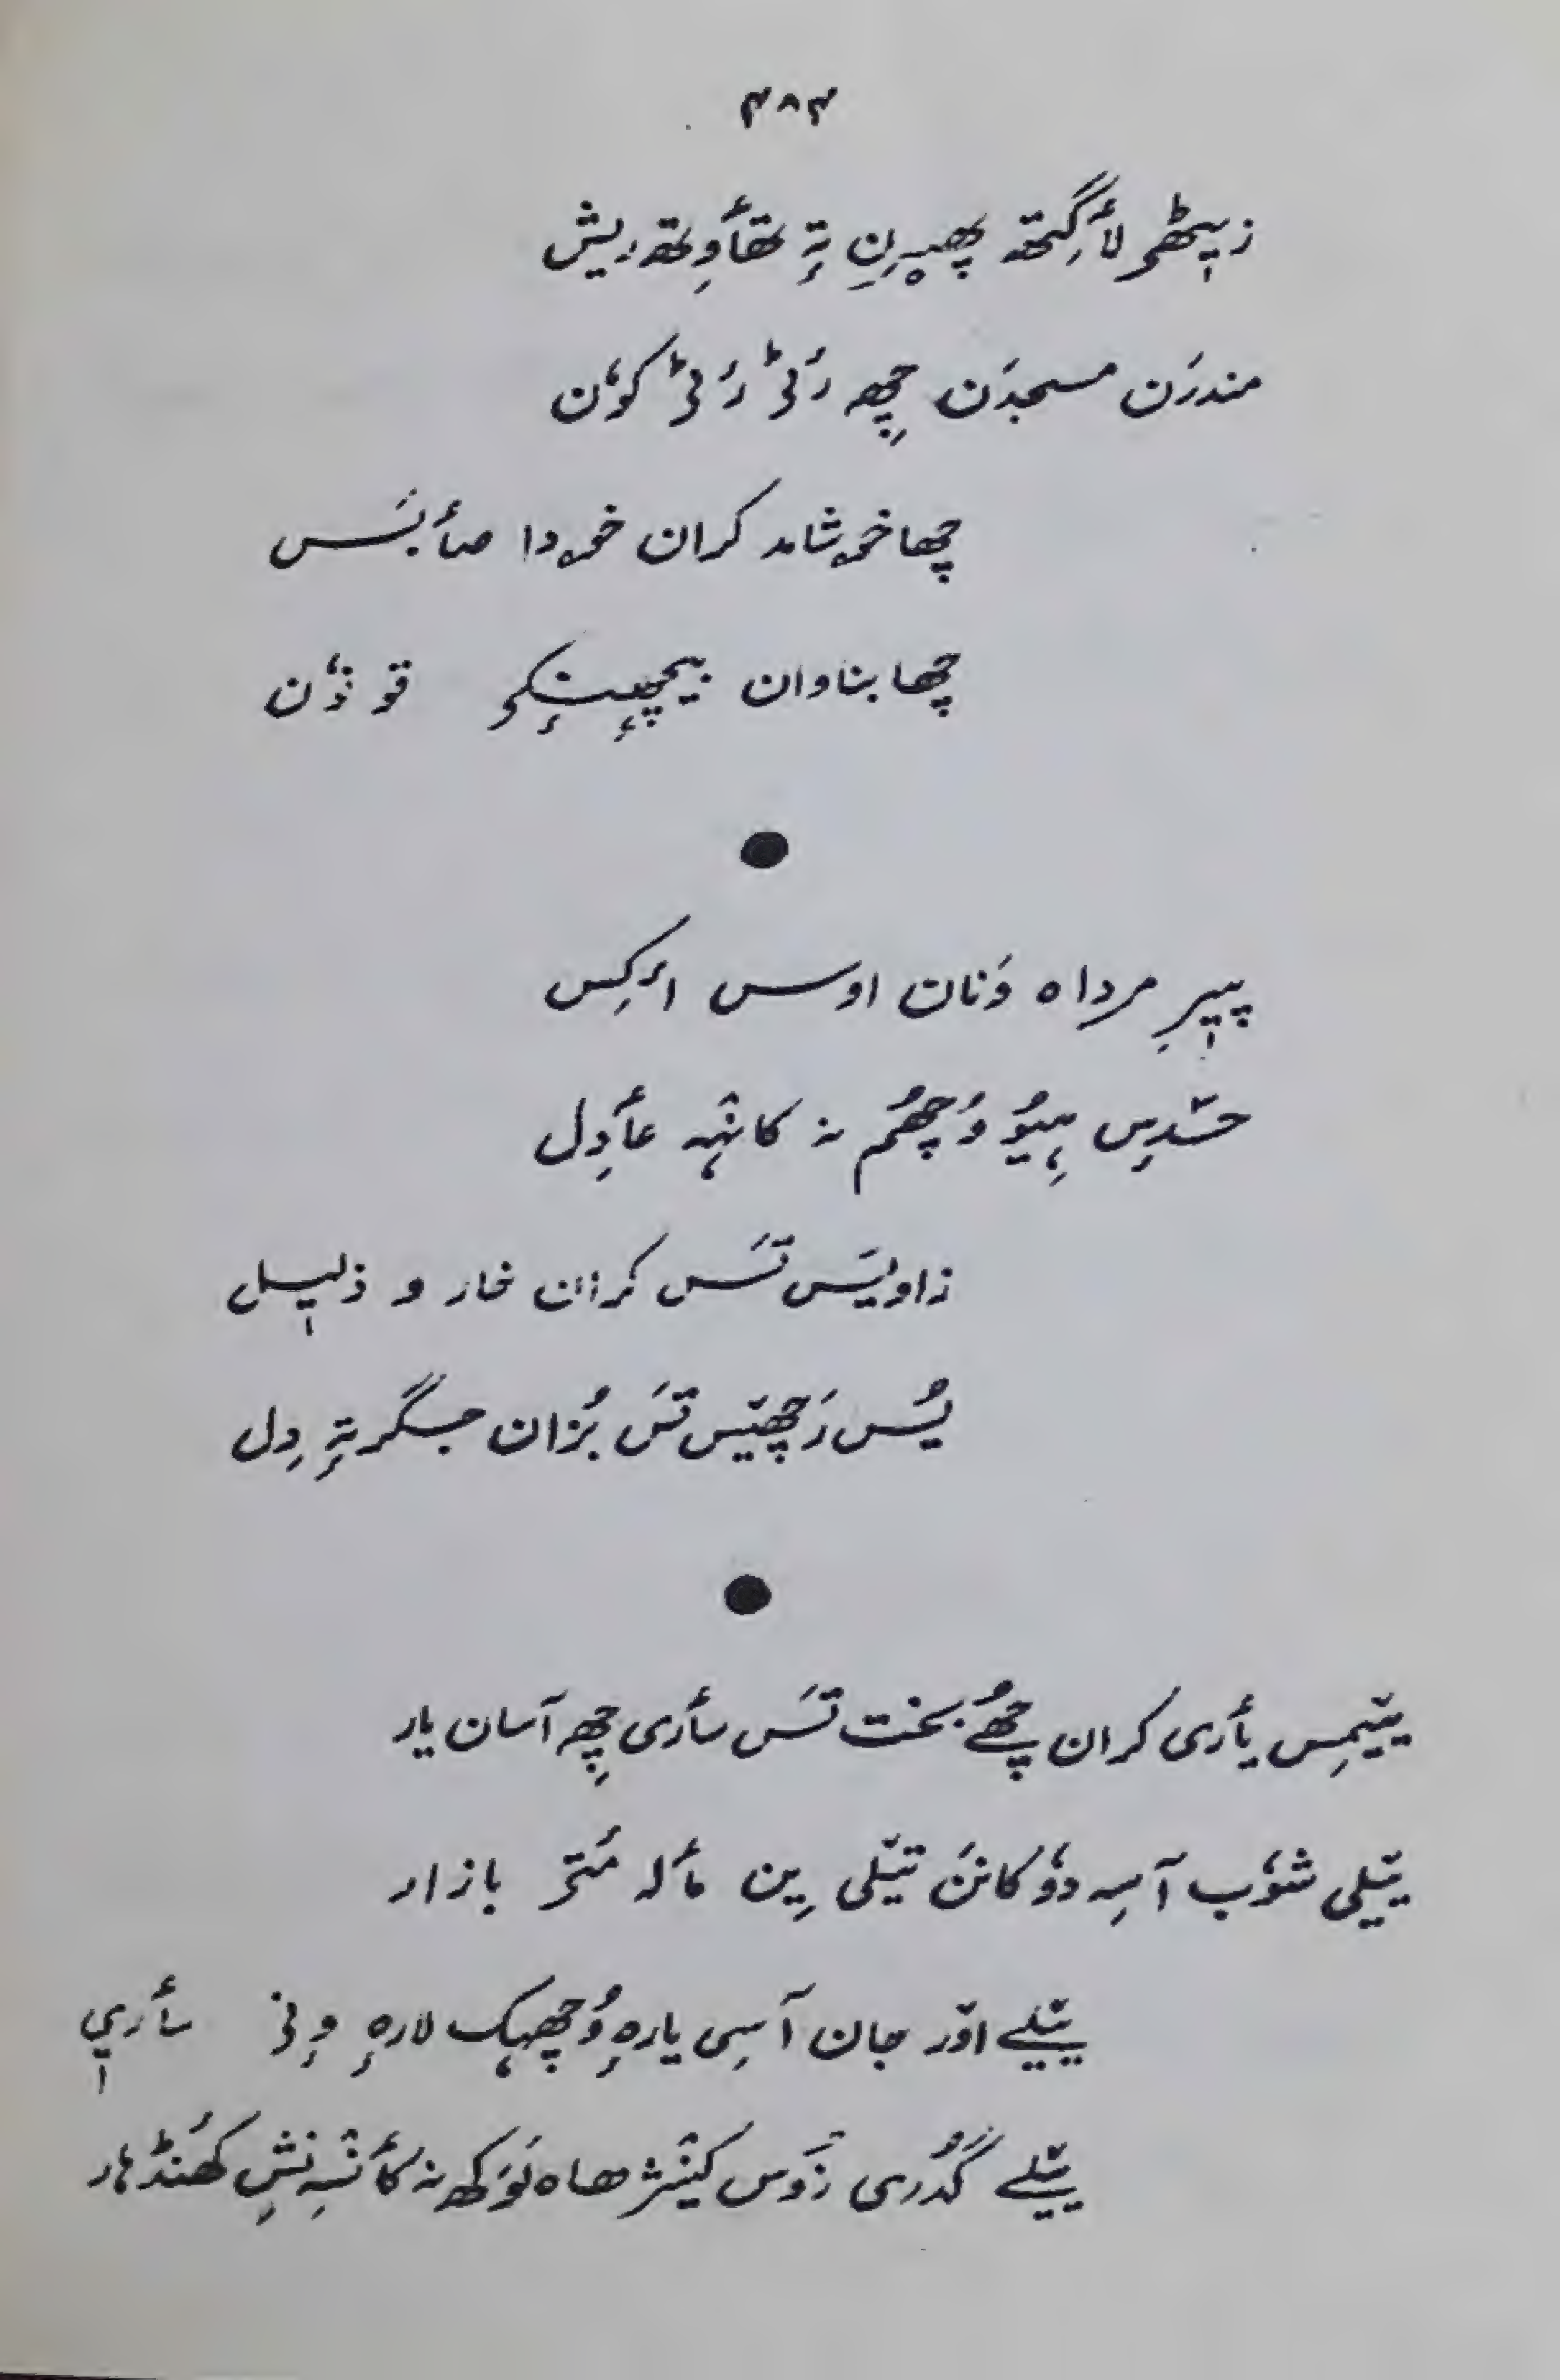 ۴۸۴
زیٖٹھۍ لٲگِتھ پھیرنِ تہٕ تھٲوِتھ ریش
مندرَن مسجدَن چِھ رَٹۍ رَٹۍ کوٗن
چھا خۄشامد کران خۄدا صٲبَس
چھا بناوان بیچھِنٕکۍ قونوٗن
پیٖرِ مرداہ وَنان اوس اَکِس
حسدِس ہِیوٗ وُچھُم نہ کانٛہہ عٲدِل
زاویَس تَس کران خار و ذلیٖل
یُس رَچھیَس تَس بُزان جگر تہٕ دِل
یَتیمِس یٲری کران چھُے بخت تَس سٲری چِھ آسان یار
ییٚلی شوٗب آسِہ دۄکانَن تیٚلی یِن مٲلہ مُتۍ بازار
ییٚلے اوٚر جان آسِی یارہٕ وُچھہَک لارہٕ وٕنۍ سٲریٖ
ییٚلے گُدری زَوس کینٛژھاہ نَوکھ نہ کٲنٛسہِ نِشِ کھَنڈہار